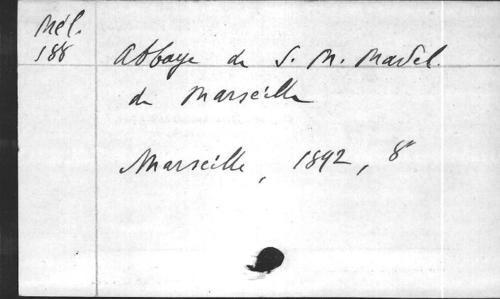 Mél.
188
Abbaye de S. M. Madel.
de Marseille
Marseille, 1892, 8°